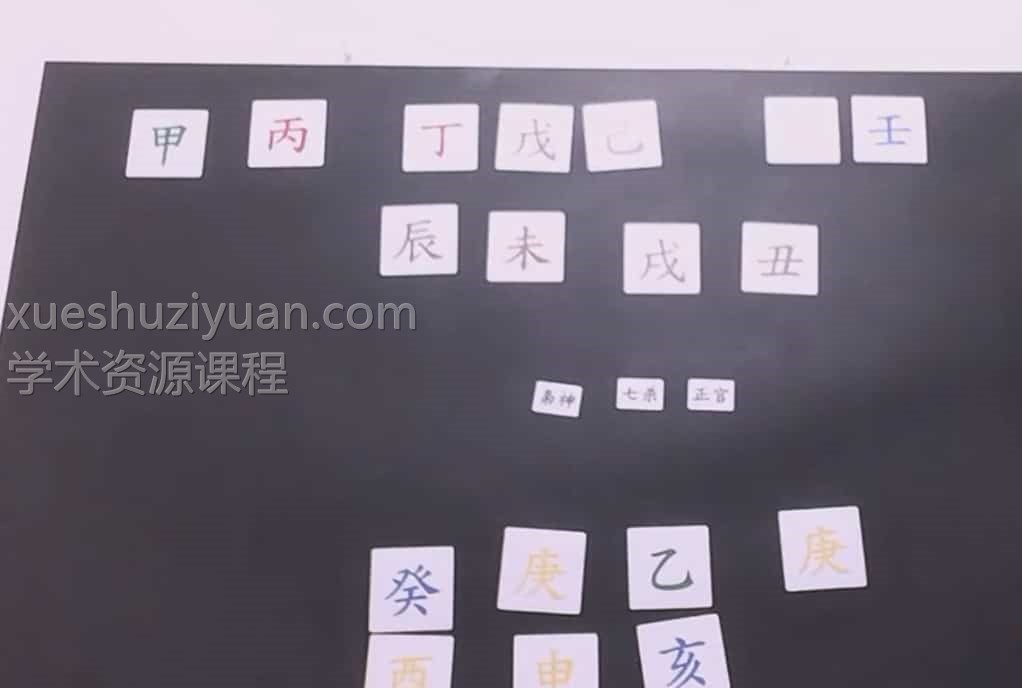 甲 丙 丁 戊 己 壬
辰 未 戌 丑
xueshuziyuan.com
学术资源课程
枭神 七杀 正官
癸 庚 乙 庚
酉 申 亥